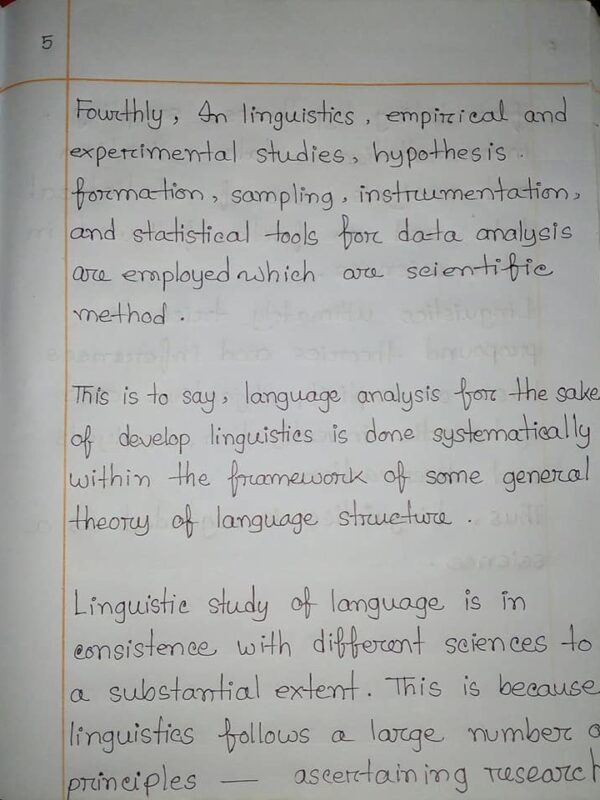 5
Fourthly, In linguistics, empirical and
experimental studies, hypothesis
formation, sampling, instrumentation,
and statistical tools for data analysis
are employed which are scientific
method.
This is to say, language analysis for the sake
of develop linguistics is done systematically
within the framework of some general
theory of language structure.
Linguistic study of language is in
consistence with different sciences to
a substantial extent. This is because
linguistics follows a large number
principles — ascertaining research